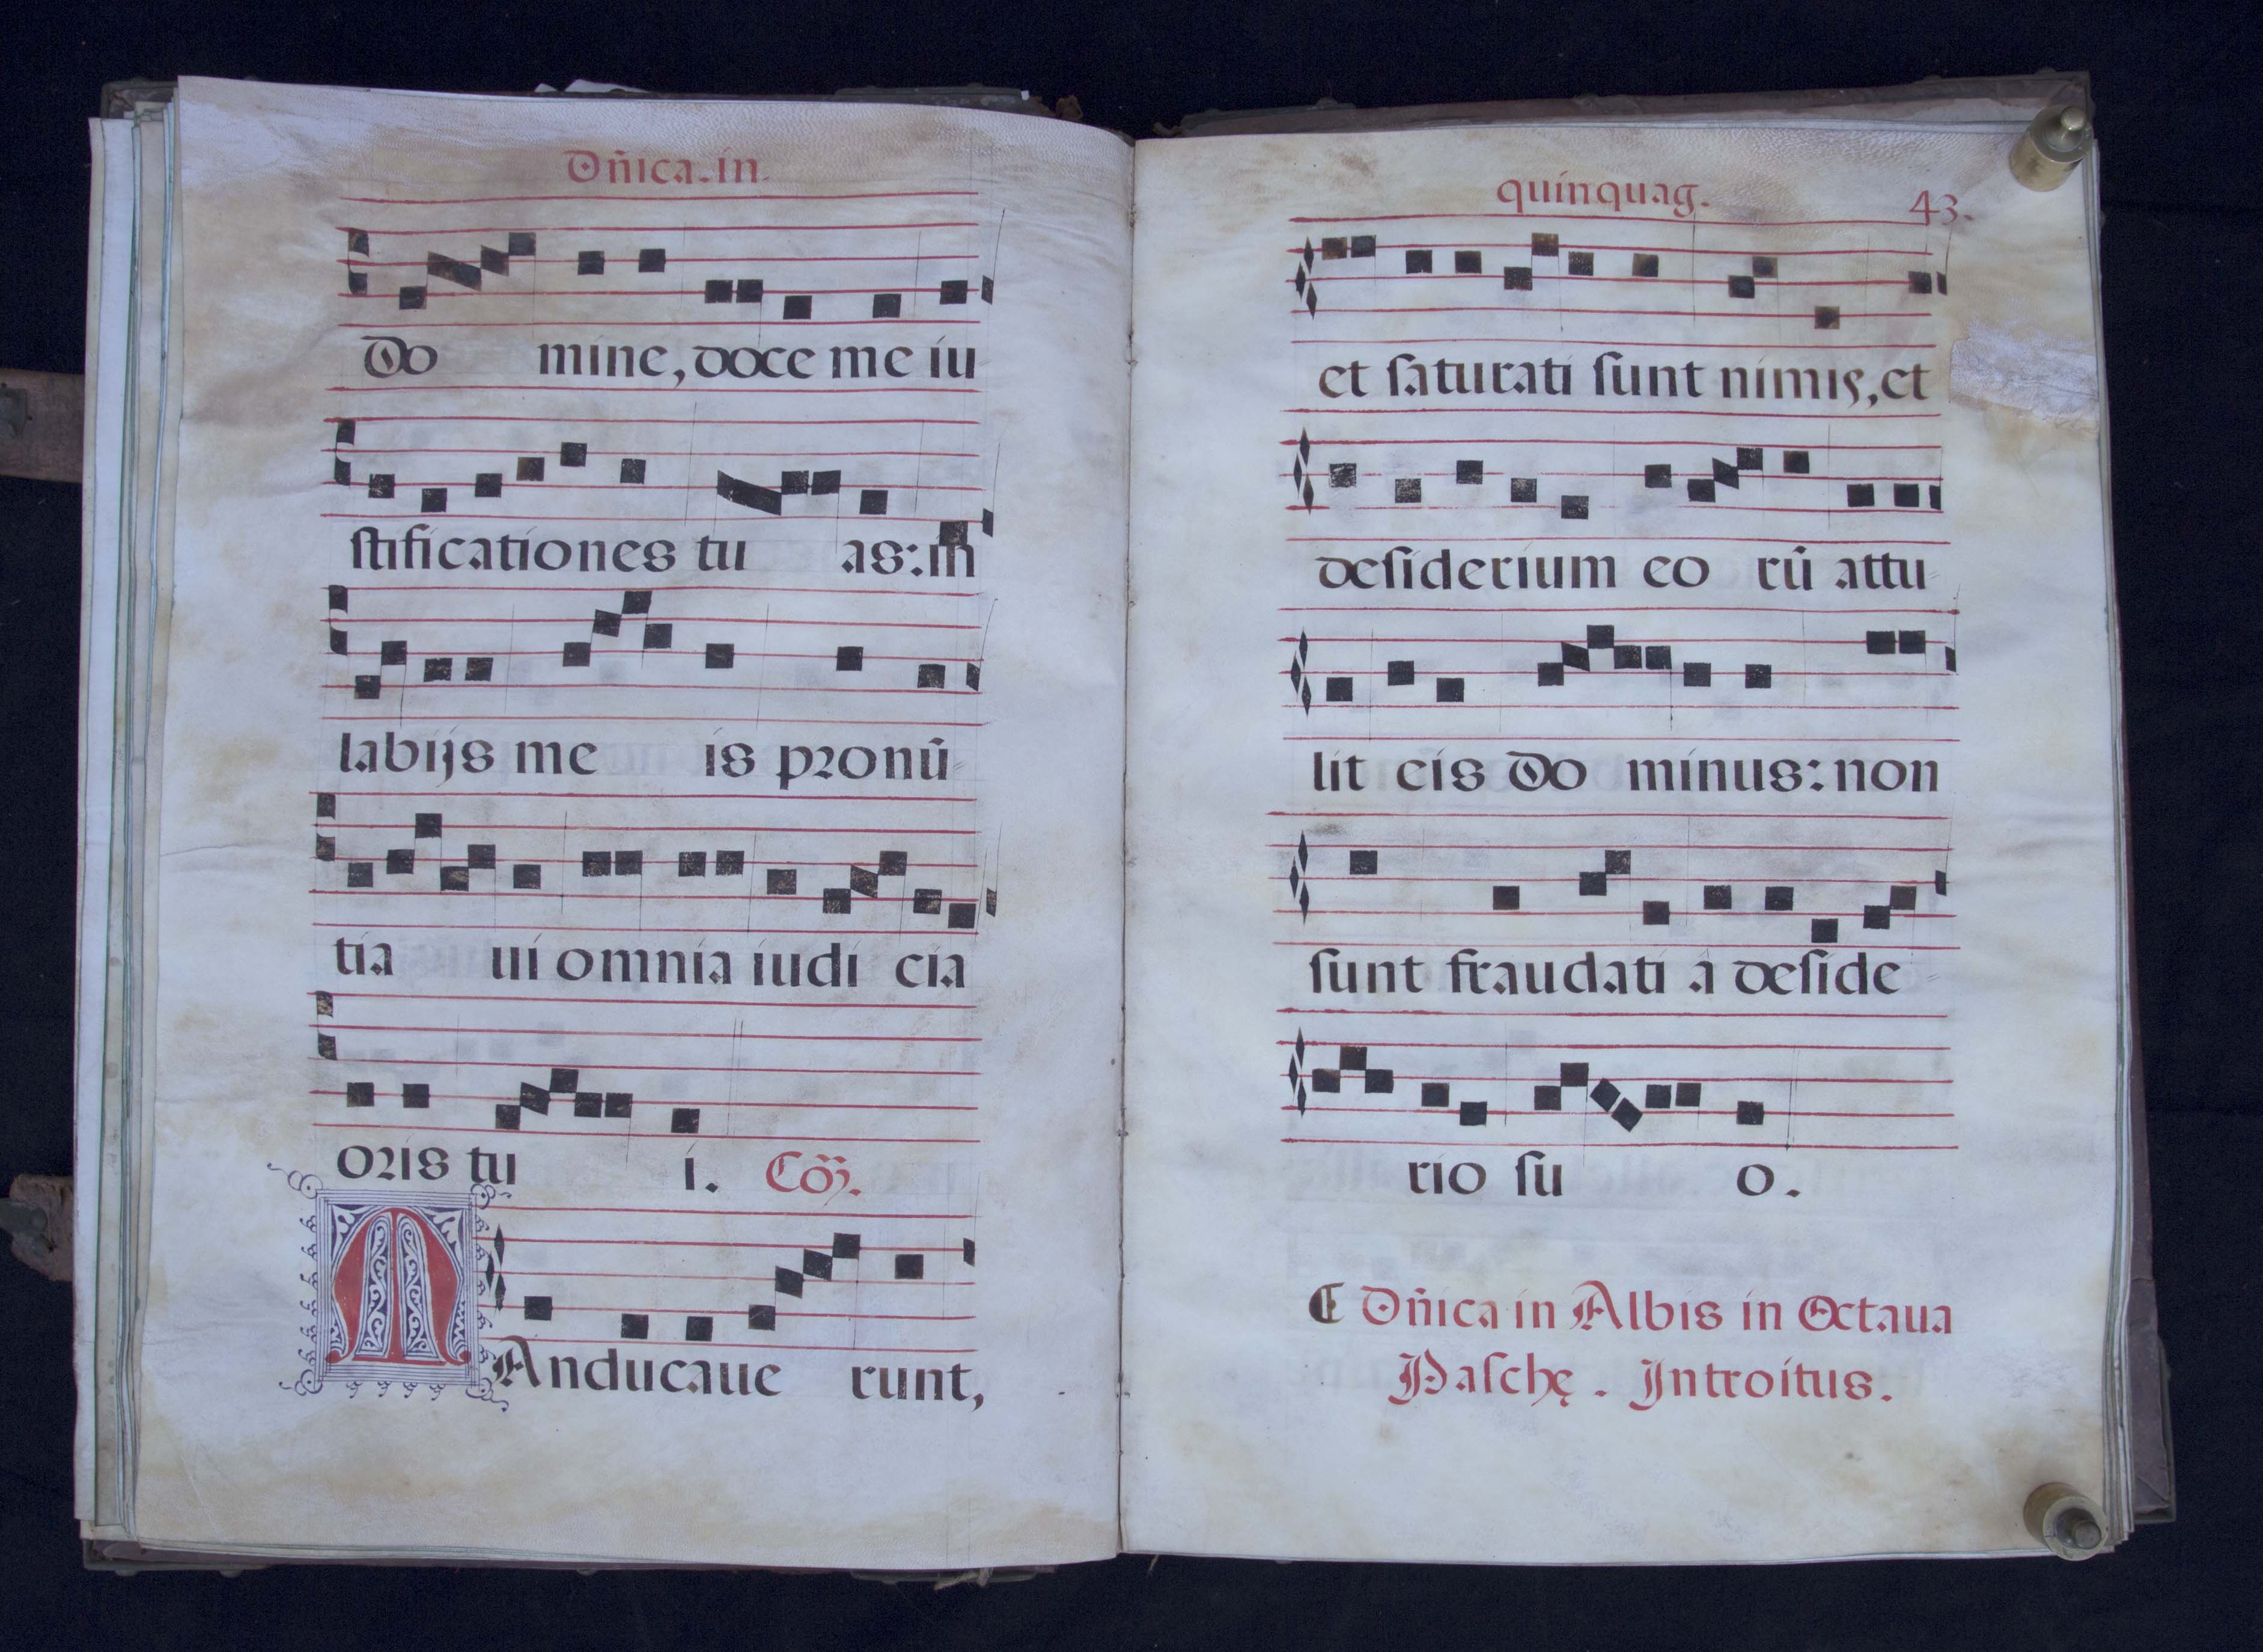 Dñica.in.
Do mine, doce me iu
stificationes tu as: in
labijs me is pronũ
tia ui omnia iudi cia
oris tu i. Cõ.
MAnducaue runt,
quinquag. 43.
et saturati sunt nimis, et
desiderium eo rũ attu
lit eis Do minus: non
sunt fraudati à deside
rio su o.
Dñica in Albis in Octaua
Paschę. Introitus.